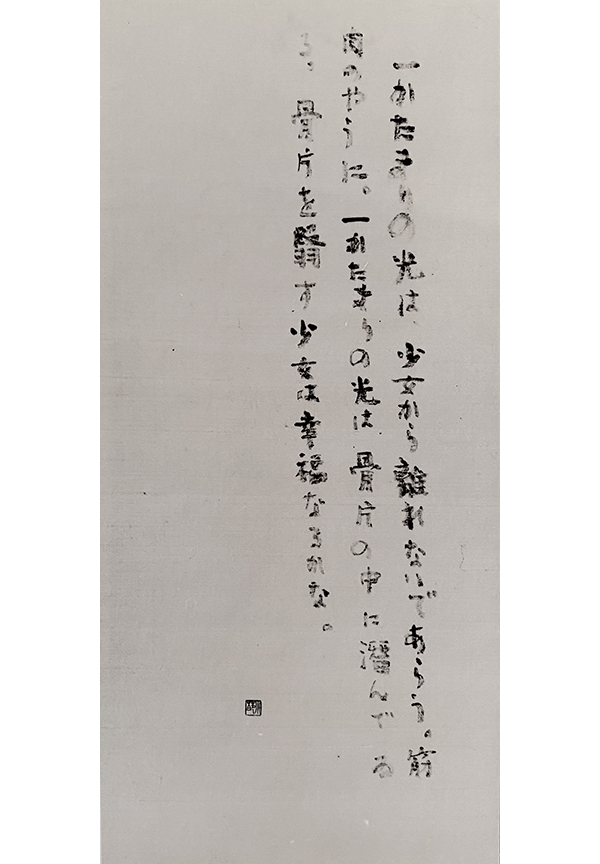 一かたまりの光は、少女から離れないであらう。筋
肉のやうに。一かたまりの光は骨片の中に潜んでゐ
る、骨片を翳す少女は幸福なるかな。